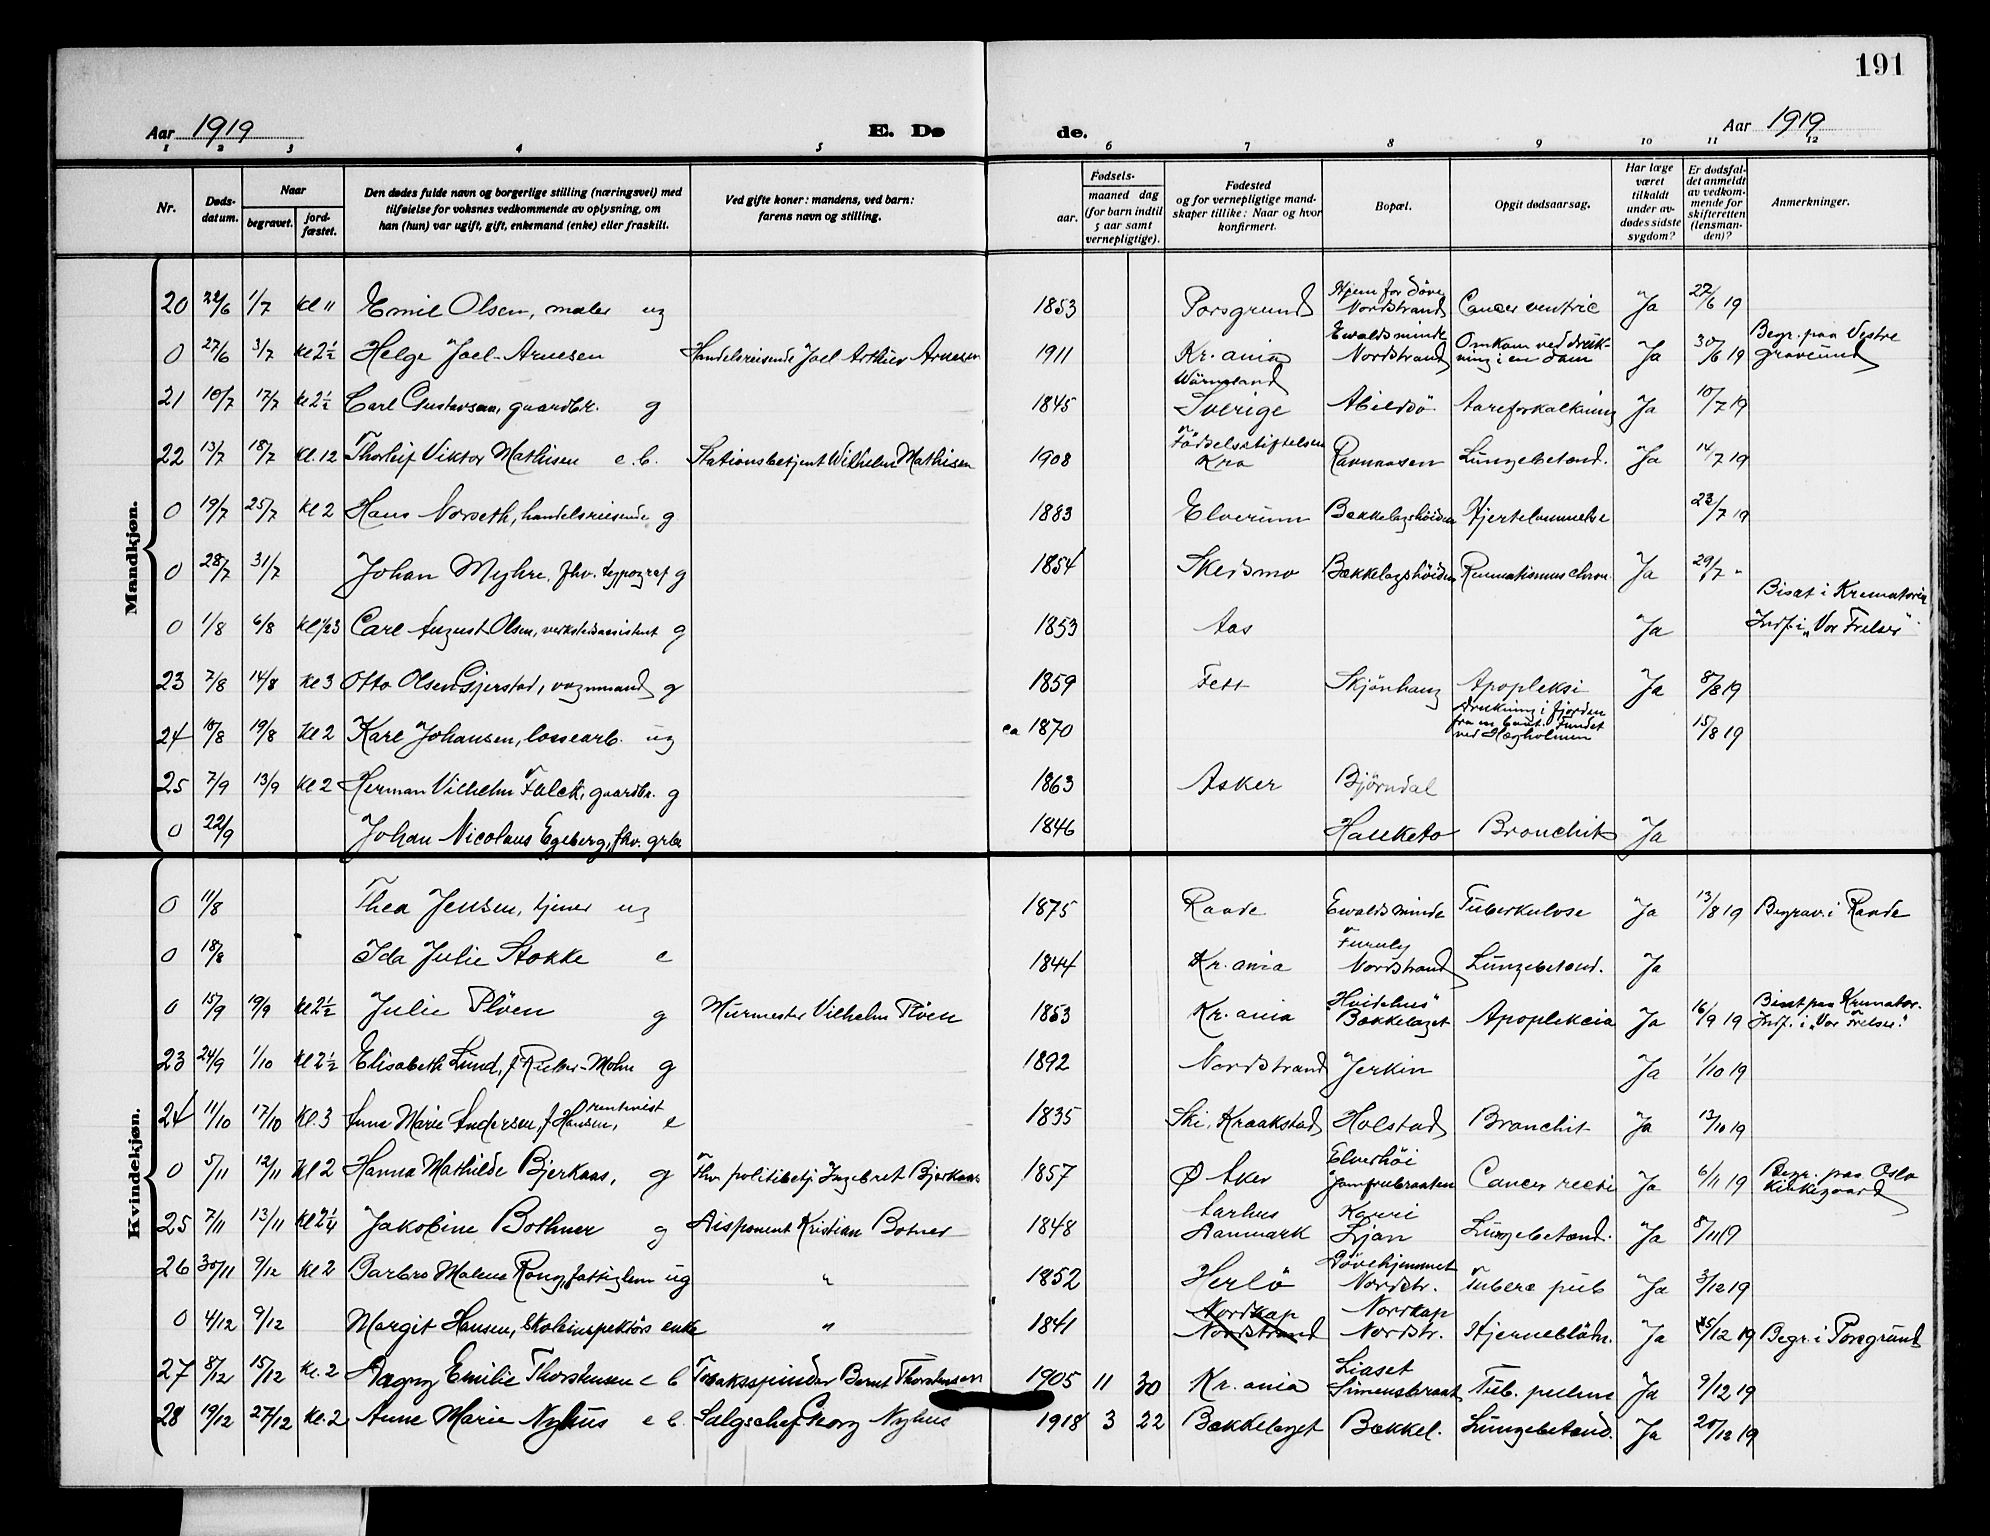 191
Aar 1919 E. Dø de. Aar 1919
1 2 3 4 5 6 7 8 9 10 11 12
Nr. Døds-datum. Naar begravet. jord-fæstet. Den dødes fulde navn og borgerlige stilling (næringsvei) med tilføielse for voksnes vedkommende av oplysning, om han (hun) var ugift, gift, enkemand (enke) eller fraskilt. Ved gifte koner: mandens, ved barn: farens navn og stilling. Fødsels- aar. maaned dag (for barn indtil 5 aar samt vernepligtige). Fødested og for vernepligtige mand-skaper tillike: Naar og hvor konfirmert. Bopæl. Opgit dødsaarsag. Har læge været tilkaldt under av-dødes sidste sygdom? Er dødsfal-det anmeldt av vedkom-mende for skifteretten (lensman-den)? Anmerkninger.
Mandkjøn.
20 22/6 1/7 Kl 11 Emil Olsen, maler ug 1853 Porsgrund Hjem for Døve Nordstrand Cancer ventric Ja 27/6 19
0 27/6 3/7 Kl 2½ Helge Joel Arnesen Handelsreisende Joel Arthur Arnesen 1911 Kr.ania Ewaldsminde Nordstrand Omkom ved druk-ning i en dam Ja 30/6 19 Begr. paa Vestre gravlund
21 10/7 17/7 Kl 2½ Carl Gustavsen, gaardbr. g 1845 Wärmland Sverige Abildsö Aareforkalkning Ja 10/7 19
22 13/7 18/7 Kl. 12 Thorleif Viktor Mathisen e.b. Stationsbetjent Wilhelm Mathisen 1908 Födselsstiftelsen Kra Ravnaasen Lungebetænd. Ja 14/7 19
0 19/7 25/7 Kl 2 Hans Norseth, handelsreisende g 1883 Elverum Bækkelagshöiden Hjertelammelse 22/7 19
0 28/7 31/7 Johan Myhre, fhv. typograf g 1854 Skedsmo Bækkelagshöiden Reumatismus chron. Ja 29/7 "
0 1/8 6/8 Kl ½3 Carl August Olsen, verkstedsassistent g 1853 Aas Ja Bisat i Krematoriet Jordf. i "Vor Frelser"
23 7/8 14/8 Kl 3 Otto Olsen Gjerstad, vognmand g 1859 Fett Skjönhaug Apopleksi Ja 8/8 19
24 10/8 19/8 Kl 2 Karl Johansen, lossearb. ug ca 1870 Drukning i fjorden fra en baat. Fundet ved Hægholmen 15/8 19
25 7/9 13/9 Kl 2 Herman Vilhelm Falck, gaardbr. g 1863 Asker Björndal
0 22/9 Johan Nicolaus Egeberg, fhv. grbr 1846 Hauketo Bronchit Ja
Kvindekjøn.
0 11/8 Thea Jensen, tjener ug 1875 Raade Ewaldsminde Tuberkulose Ja 13/8 19 Begrav. i Raade
0 18/8 Ida Julie Stokke e 1844 Kr.ania Furuly Nordstrand Lungebetænd. Ja
0 15/9 19/9 Kl 2½ Julie Plöen g Murmester Vilhelm Plöen 1853 Kr.ania "Hvidehus" Bækkelaget Apoplekcia Ja 16/9 19 Bisat paa Kremator. Jordf. i "Vor Frelser"
23 24/9 1/10 Kl 2½ Elisabeth Lund, f. g 1892 Nordstrand Jerkin Ja 1/10 19
24 11/10 17/10 Kl. 3 Anne Marie Andersen, f Hansen, rentenist e 1835 Ski, Kraakstad Holstad Bronchit Ja 13/10 19
0 5/11 12/11 Kl 2 Hanna Mathilde Bjerkaas, g Fhv. politibetj. Ingebret Bjerkaas 1857 Ø Aker Elverhöi Jomfrubraaten Cancer recti Ja 6/11 19 Begr. paa Oslo kirkegaard
25 7/11 13/11 Kl 2¼ Jakobine Bothner g Disponent Kristian Botner 1848 Aarhus Danmark Kauri Ljan Lungebetænd. Ja 8/11 19
26 30/11 9/12 Kl 2 Barbro Malene Rong, fattiglem ug " 1852 Herlö Dövehjemmet Nordstr. Tuberc pulm Ja 3/12 19
0 4/12 9/12 Margit Hansen, Skoleinspektörs enke " 1841 Nordkap Nordstrand Nordkap Nordstr. Hjerneblödn. Ja 5/12 19 Begr. i Porsgrund
27 8/12 15/12 Kl. 2 Dagny Emilie Thorstensen e b Tobaksspinder Bernt Thorstensen 1905 11 30 Kr.ania Liaset Simensbraat Tub. pulm Ja 9/12 19
28 19/12 27/12 Kl. 2 Anne Marie Nyhus e b. Salgschef Georg Nyhus 1918 3 22 Bækkelaget Bækkel. Lungebetænd. Ja 20/12 19